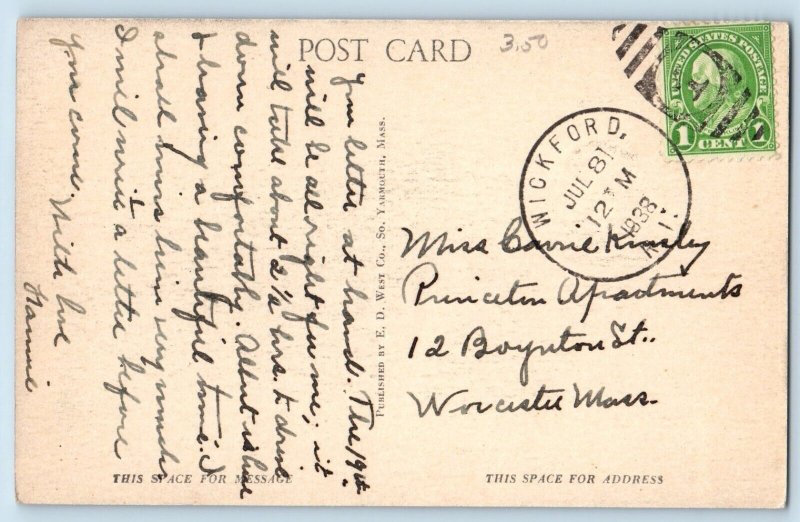 POST CARD
3.50
UNITED STATES POSTAGE
1 CENT 1
WICKFORD,
JUL 31
12 M
1938
R.I.
Your letter at hand. The 19th
will be all right for me; it
will take about 2 1/2 hrs. to drive
down comfortably. Albert is here
& having a beautiful time. I
shall miss him very much
I will write a letter before
you come. With love
Nannie
PUBLISHED BY E. D. WEST CO., SO. YARMOUTH, MASS.
Miss Carrie Kinsley
Princeton Apartments
12 Boynton St..
Worcester Mass.
THIS SPACE FOR MESSAGE
THIS SPACE FOR ADDRESS